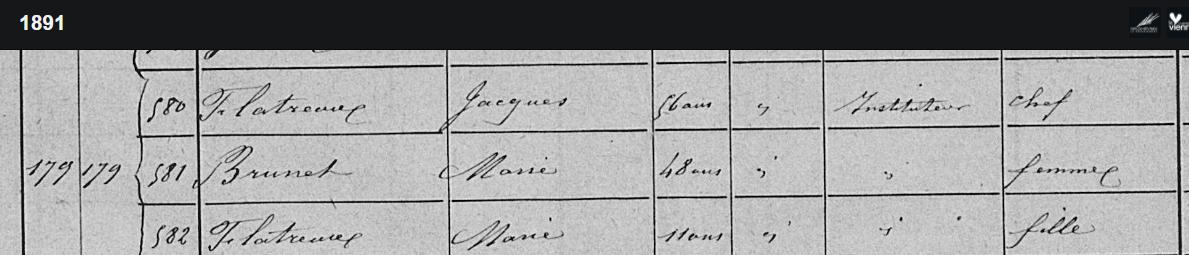 1891
580 Flatreaux Jacques 56 ans " Instituteur chef
179 179 581 Brunet Marie 48 ans " " femme
582 Flatreaux Marie 11 ans " " fille